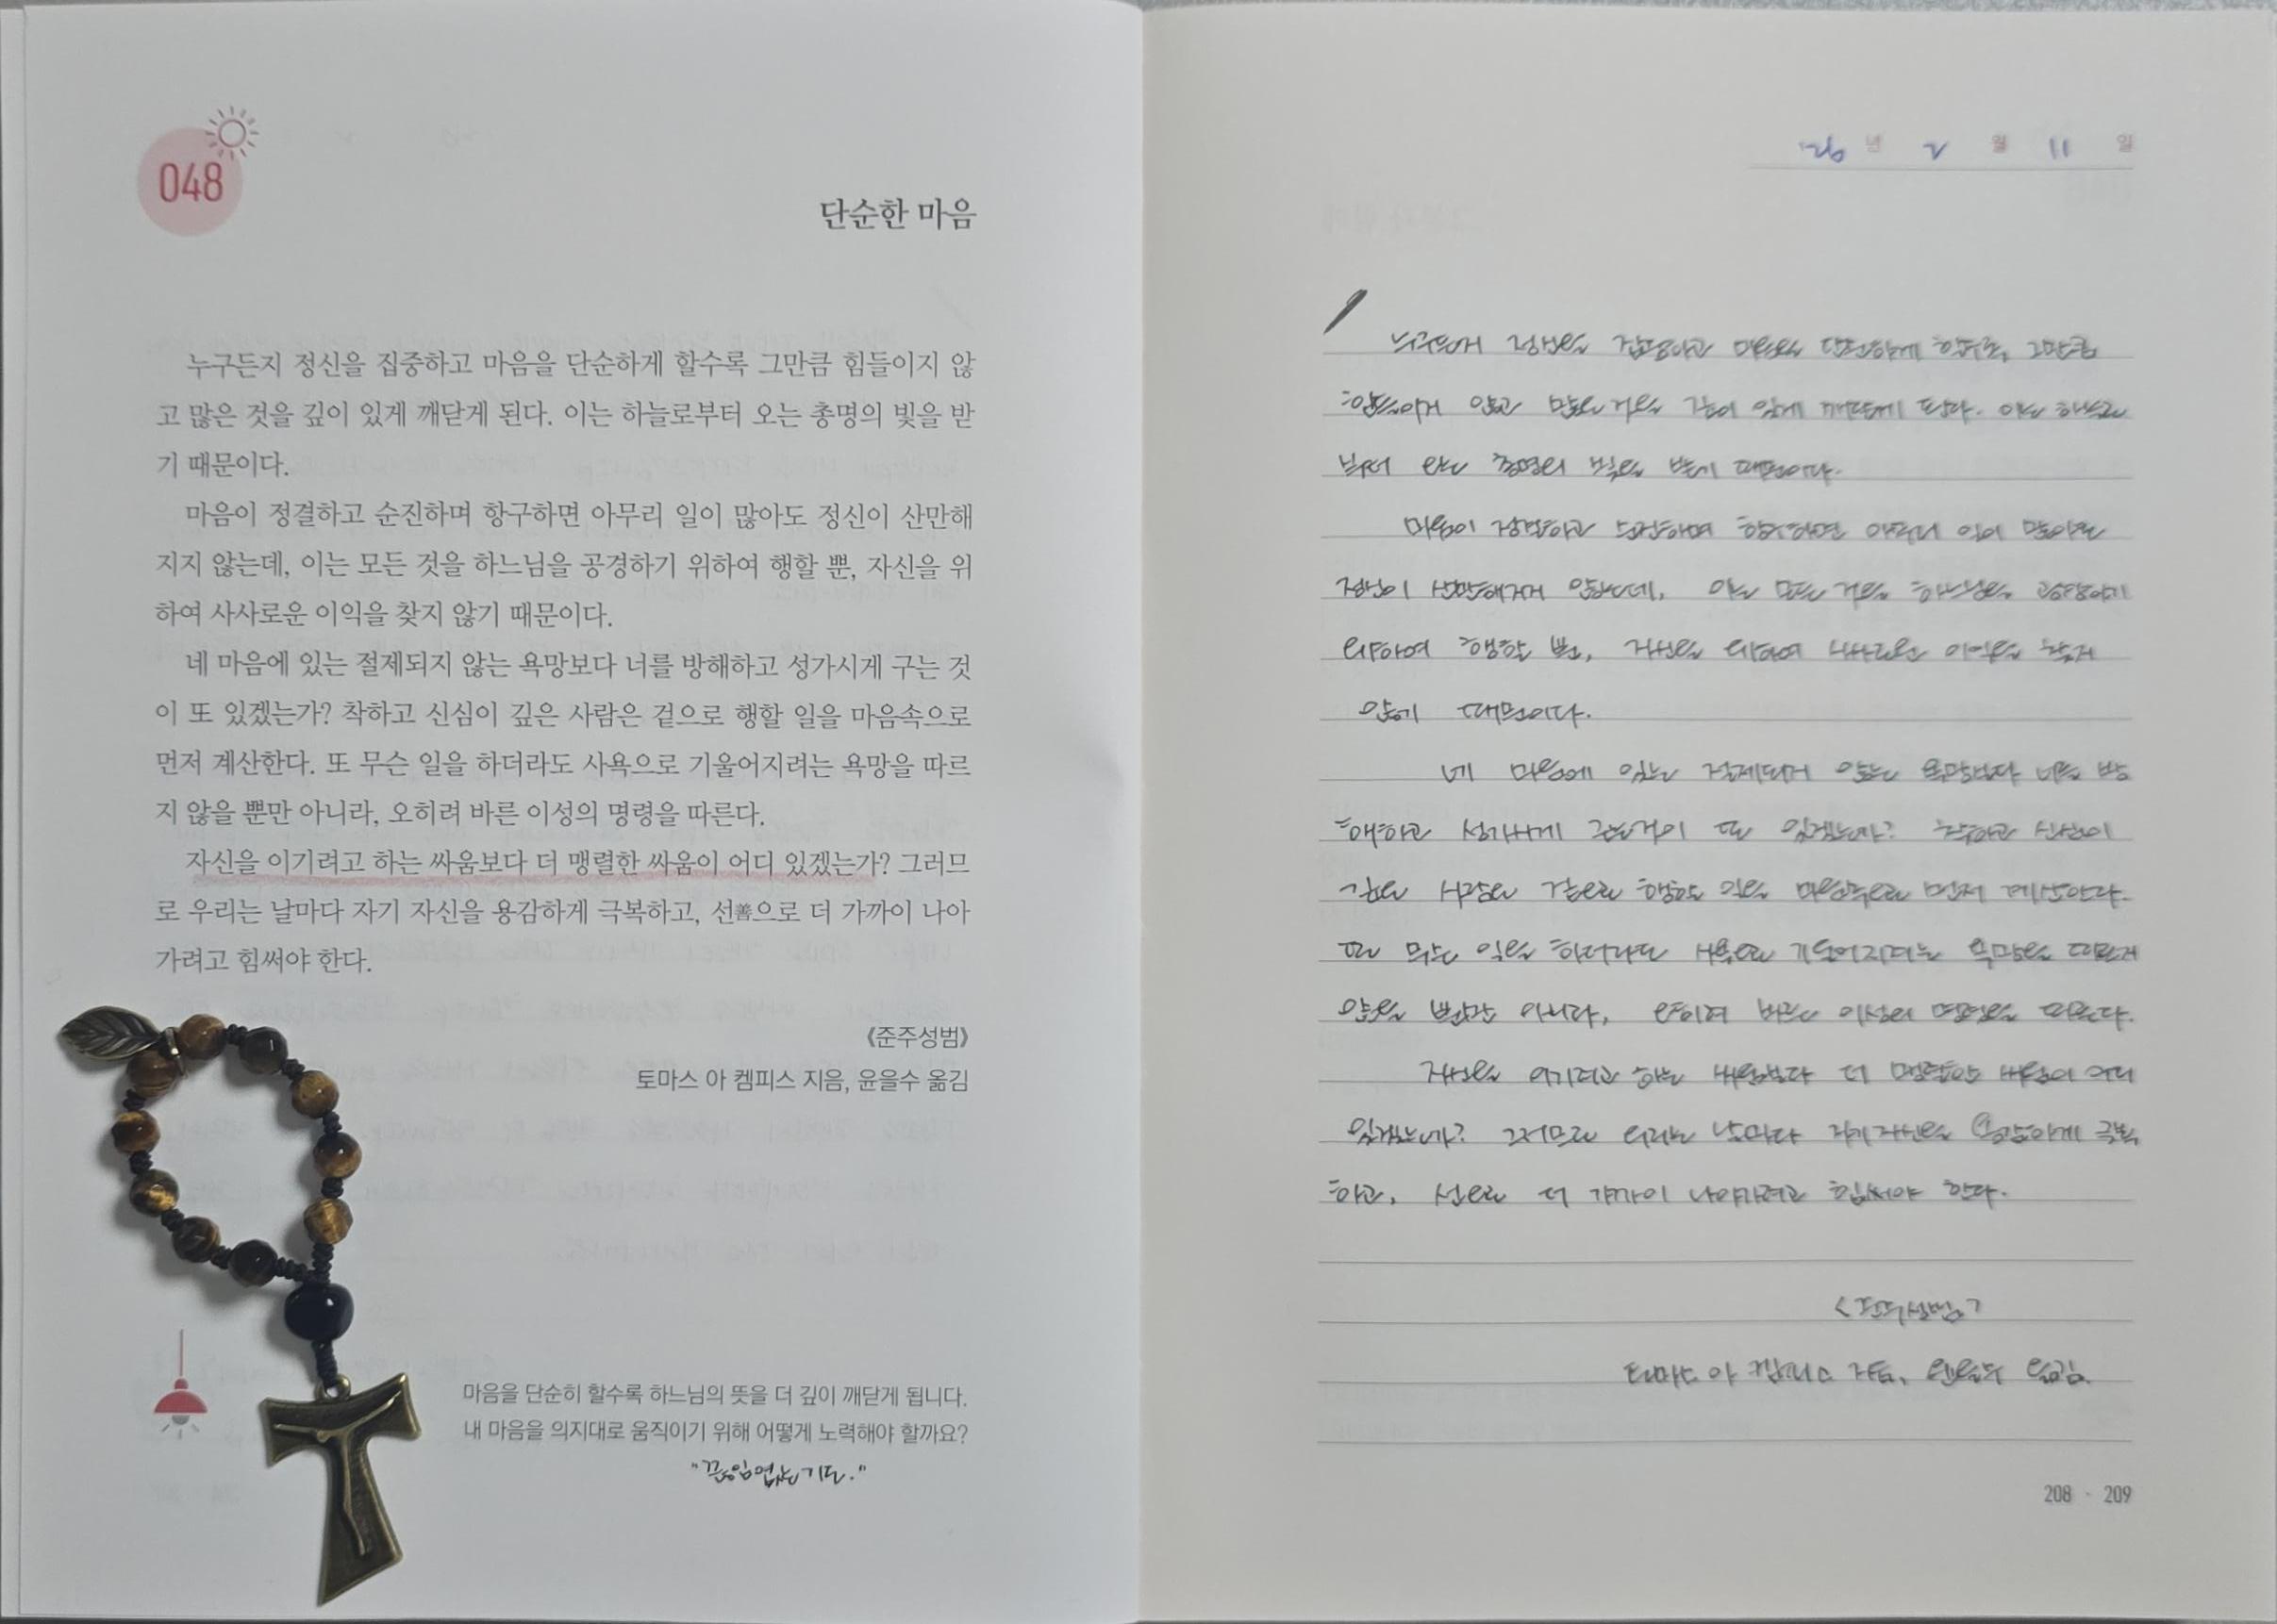 048
단순한 마음
누구든지 정신을 집중하고 마음을 단순하게 할수록 그만큼 힘들이지 않
고 많은 것을 깊이 있게 깨닫게 된다. 이는 하늘로부터 오는 총명의 빛을 받
기 때문이다.
마음이 정결하고 순진하며 항구하면 아무리 일이 많아도 정신이 산만해
지지 않는데, 이는 모든 것을 하느님을 공경하기 위하여 행할 뿐, 자신을 위
하여 사사로운 이익을 찾지 않기 때문이다.
네 마음에 있는 절제되지 않는 욕망보다 너를 방해하고 성가시게 구는 것
이 또 있겠는가? 착하고 신심이 깊은 사람은 겉으로 행할 일을 마음속으로
먼저 계산한다. 또 무슨 일을 하더라도 사욕으로 기울어지려는 욕망을 따르
지 않을 뿐만 아니라, 오히려 바른 이성의 명령을 따른다.
자신을 이기려고 하는 싸움보다 더 맹렬한 싸움이 어디 있겠는가? 그러므
로 우리는 날마다 자기 자신을 용감하게 극복하고, 선善으로 더 가까이 나아
가려고 힘써야 한다.
《준주성범》
토마스 아 켐피스 지음, 윤을수 옮김
마음을 단순히 할수록 하느님의 뜻을 더 깊이 깨닫게 됩니다.
내 마음을 의지대로 움직이기 위해 어떻게 노력해야 할까요?
"끊임없는 기도."
26 년 2 월 11 일
누구든지 정신을 집중하고 마음을 단순하게 할수록 그만큼
힘들이지 않고 많은 것을 깊이 있게 깨닫게 된다. 이는 하늘로
부터 오는 총명의 빛을 받기 때문이다.
마음이 정결하고 순진하며 항구하면 아무리 일이 많아도
정신이 산만해지지 않는데, 이는 모든 것을 하느님을 공경하기
위하여 행할 뿐, 자신을 위하여 사사로운 이익을 찾지
않기 때문이다.
네 마음에 있는 절제되지 않는 욕망보다 너를 방
해하고 성가시게 구는것이 또 있겠는가? 착하고 신심이
깊은 사람은 겉으로 행할 일을 마음속으로 먼저 계산한다.
또 무슨 일을 하더라도 사욕으로 기울어지려는 욕망을 따르지
않을 뿐만 아니라, 오히려 바른 이성의 명령을 따른다.
자신을 이기려고 하는 싸움보다 더 맹렬한 싸움이 어디
있겠는가? 그러므로 우리는 날마다 자기 자신을 용감하게 극복
하고, 선으로 더 가까이 나아가려고 힘써야 한다.
<준주성범>
토마스 아 켐피스 지음, 윤을수 옮김.
208 - 209